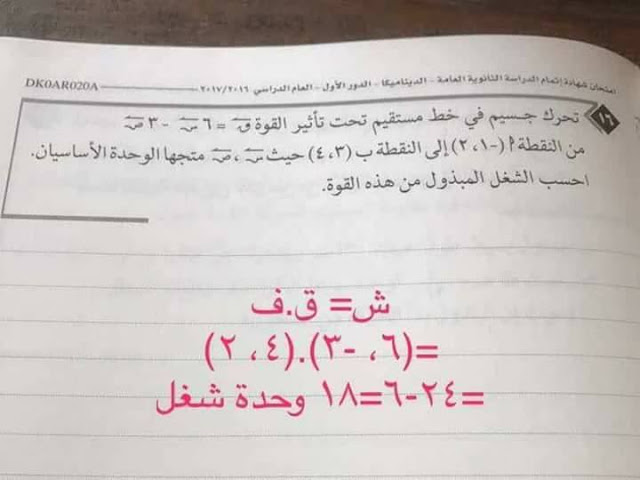 امتحان شهادة إتمام الدراسة الثانوية العامة - الديناميكا - الدور الأول - العام الدراسي ٢٠١٧/٢٠١٦
DK0AR020A
١٦ تحرك جسيم في خط مستقيم تحت تأثير القوة ق = ٦ س - ٣ ص
من النقطة أ (-١، ٢) إلى النقطة ب (٣، ٤) حيث س ، ص متجها الوحدة الأساسيان.
احسب الشغل المبذول من هذه القوة.
ش= ق.ف
=(٦، -٣).(٤، ٢)
=٢٤-٦=١٨ وحدة شغل